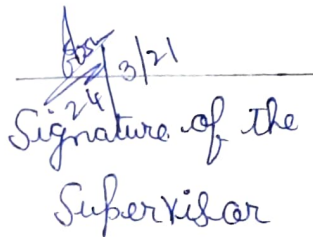 24/3/21
Signature of the
Supervisor